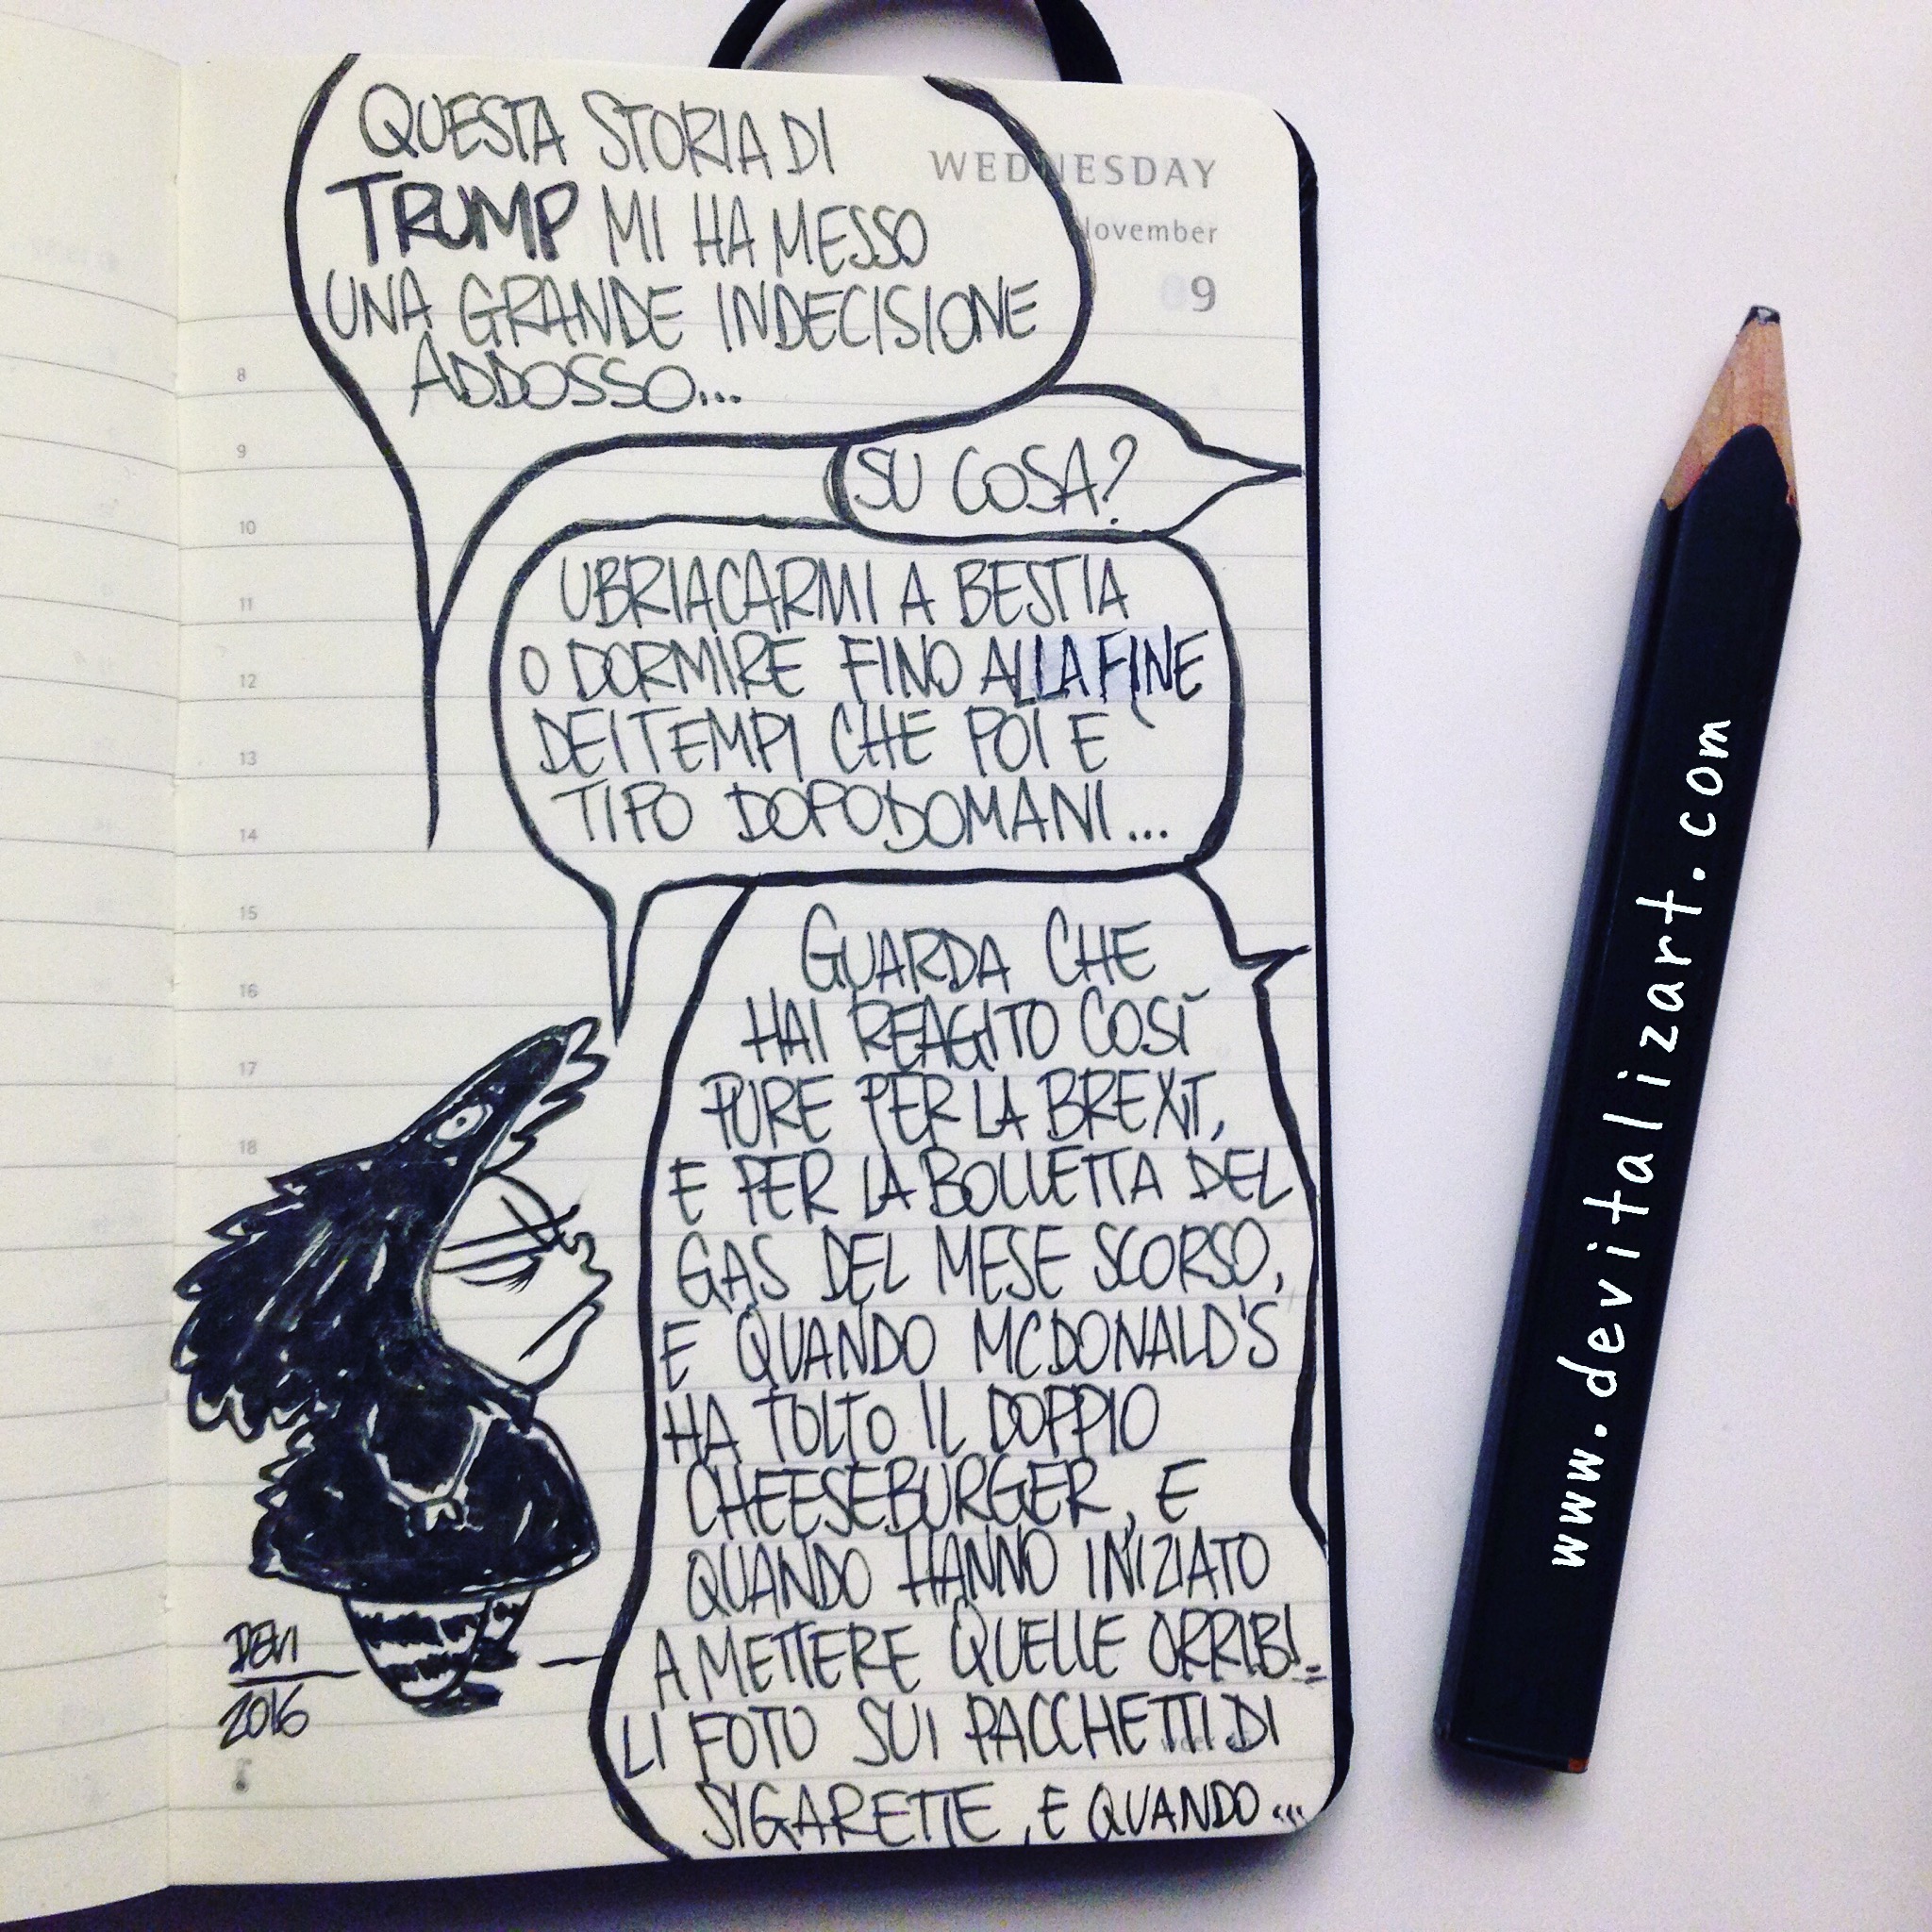 QUESTA STORIA DI
TRUMP MI HA MESSO
UNA GRANDE INDECISIONE
ADDOSSO...
WEDNESDAY
November
09
SU COSA?
UBRIACARMI A BESTIA
O DORMIRE FINO ALLA FINE
DEI TEMPI CHE POI È
TIPO DOPODOMANI...
GUARDA CHE
HAI REAGITO COSÌ
PURE PER LA BREXIT,
E PER LA BOLLETTA DEL
GAS DEL MESE SCORSO,
E QUANDO MCDONALD'S
HA TOLTO IL DOPPIO
CHEESEBURGER, E
QUANDO HANNO INIZIATO
A METTERE QUELLE ORRIBI=
LI FOTO SUI PACCHETTI DI
SIGARETTE, E QUANDO...
8
9
10
11
12
13
14
15
16
17
18
DEVI
2016
www.devitalizart.com